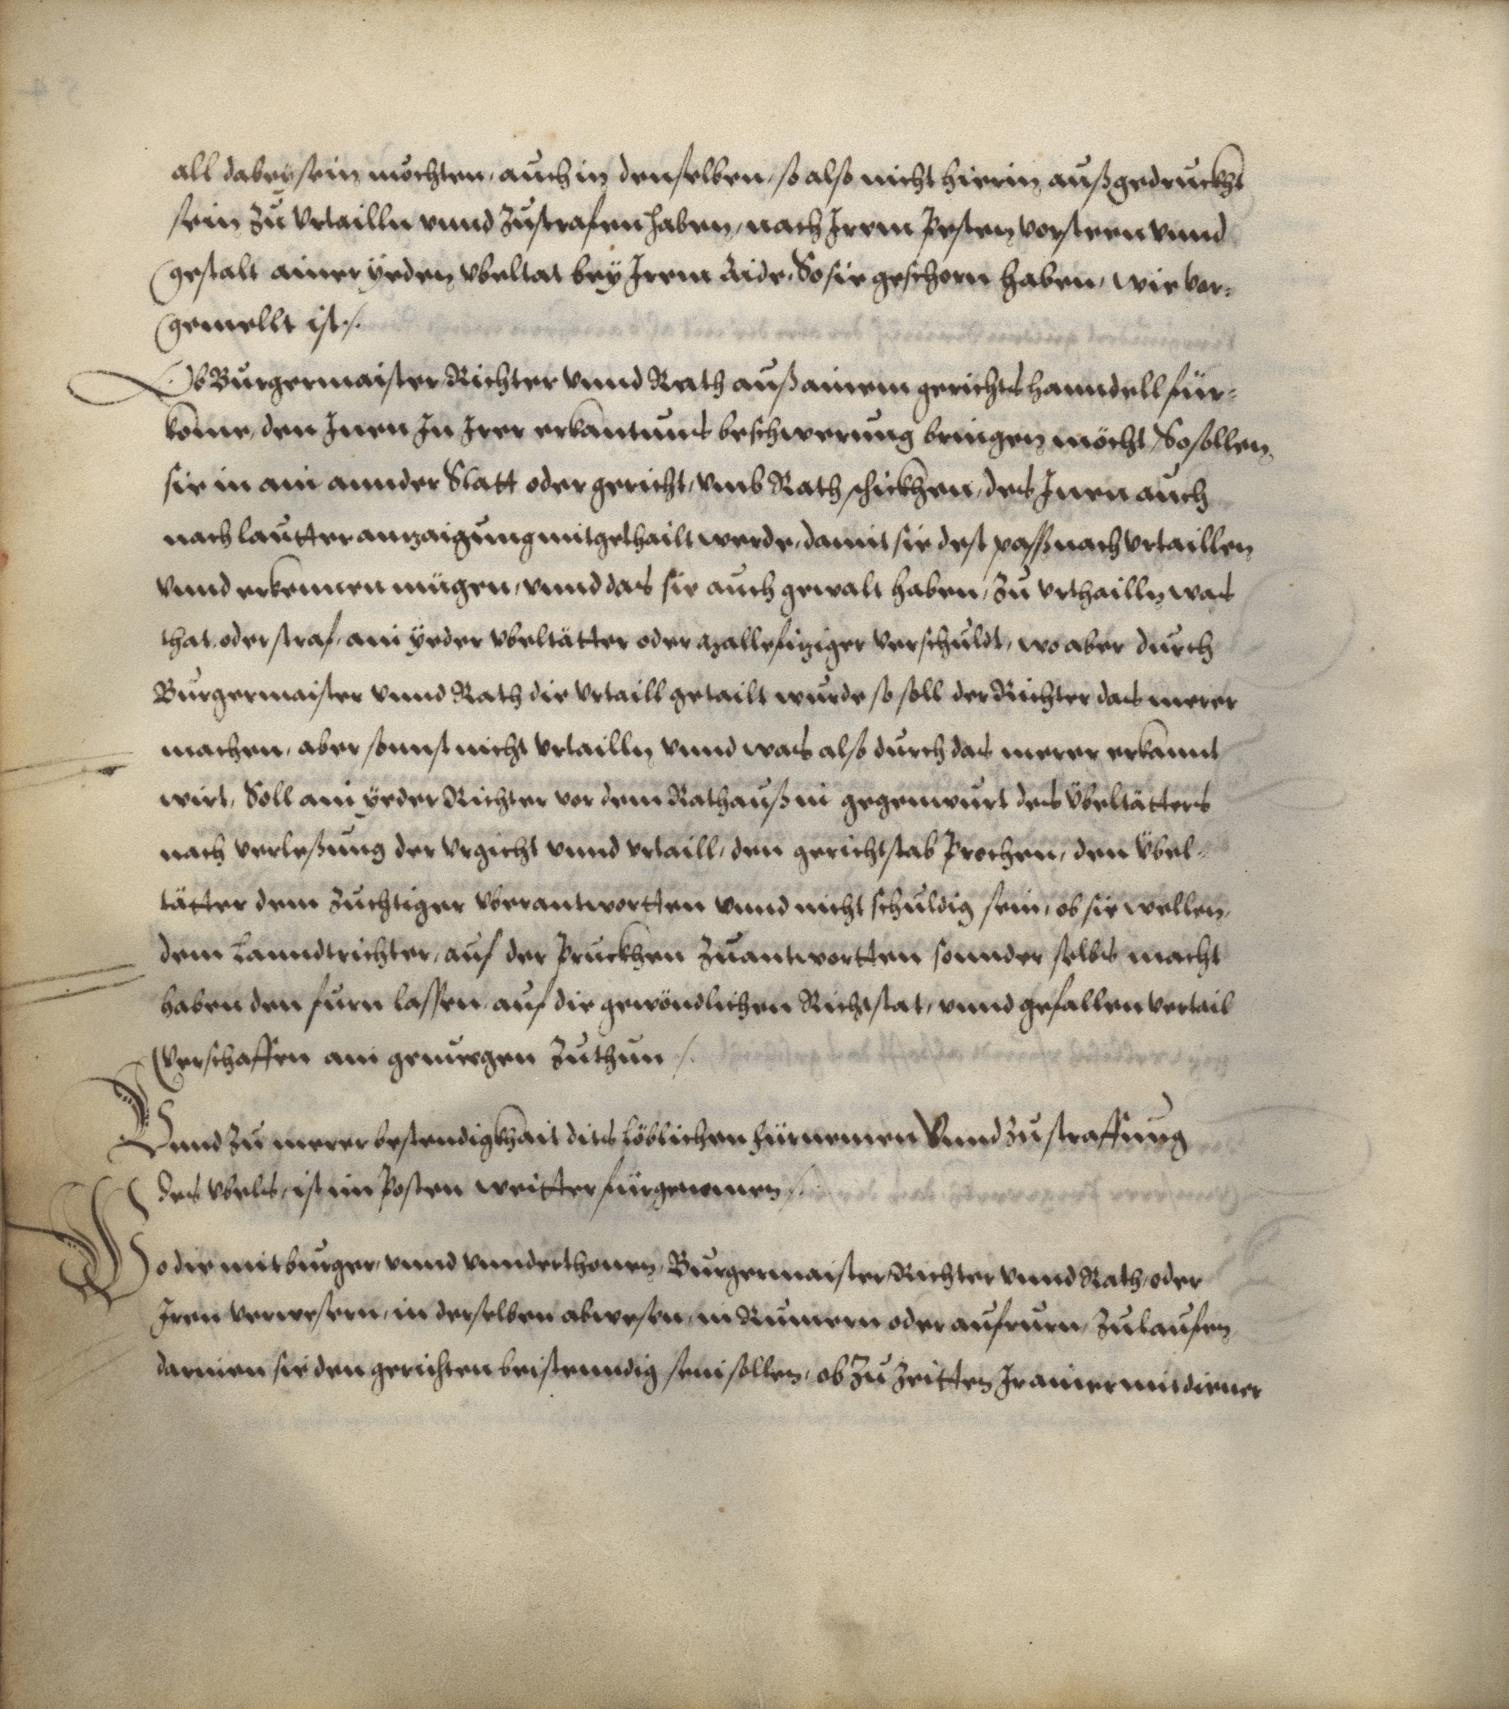 all dabey sein mochten, auch in denselben, so also nicht hierin außgedruckht
sein zu Urtailln unnd zustrafen haben, nach Irem Pesten versteen unnd
gestalt ainer yeden ubeltat bey Irem Aide, So sie geschworn haben, wie vor¬
gemellt ist /.
Ob Burgermaister Richter unnd Rath auß ainem gerichts hanndell für¬
kome, den Inen In Irer erkantnus beschwerung bringen möcht, So sollen
sie in ain annder Statt oder gericht, umb Rath schickhen, des Inen auch
nach lautter anzaigung mitgethailt werde, damit sie dest paß nach Urtaillen
unnd erkennen mügen, unnd das sie auch gewalt haben, zu urthailln was
that oder straf, ain yeder ubeltätter oder verschuldt, wo aber durch
Burgermaister unnd Rath die Urtaill getailt wurde so soll der Richter das merer
machen, aber sonnst nicht Urtailln unnd was also durch das merer erkannt
wirt, Soll ain yeder Richter vor dem Rathauß in gegenwurt des Übeltätters
nach verlesung der Urgicht unnd urtaill, den gerichtstab Prechen, den Übel¬
tätter dem zuchtiger uberantwortten unnd nicht schuldig sein, ob sie wellen,
dem Lanndtrichter, auf der Pruckhen zuantwortten sonnder selbs macht
haben den furn lassen auf die gewöndlichen Richtstat, unnd gefallen urtail
verschaffen ain genuegen zuthun /.
Unnd zu merer bestendigkhait dits löblichen fürnemen Unnd zu straffung
des ubels, ist im Posten weitter fürgenomen /.
So die mitburger, unnd unnderthonen, Burgermaister Richter unnd Rath, oder
Iren verwesern, in derselben abwesen, in Rumern oder aufrurn, zulaufen
darinen sie den gerichten beistenndig sein sollen, ob zu Zeitten Ir ainer mit diener